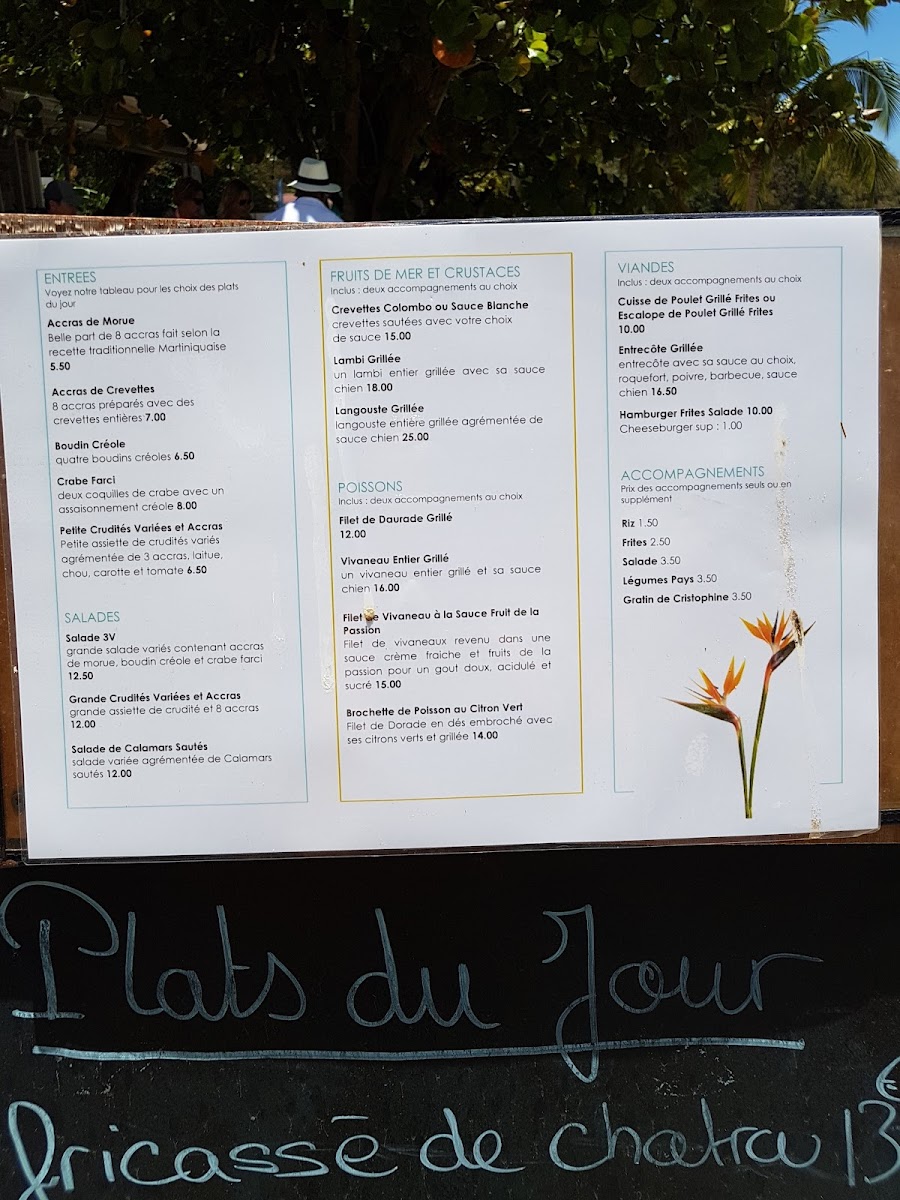 ENTREES
Voyez notre tableau pour les choix des plats
du jour
Accras de Morue
Belle part de 8 accras fait selon la
recette traditionnelle Martiniquaise
5.50
Accras de Crevettes
8 accras préparés avec des
crevettes entières 7.00
Boudin Créole
quatre boudins créoles 6.50
Crabe Farci
deux coquilles de crabe avec un
assaisonnement créole 8.00
Petite Crudités Variées et Accras
Petite assiette de crudités variés
agrémentée de 3 accras, laitue,
chou, carotte et tomate 6.50
SALADES
Salade 3V
grande salade variés contenant accras
de morue, boudin créole et crabe farci
12.50
Grande Crudités Variées et Accras
grande assiette de crudité et 8 accras
12.00
Salade de Calamars Sautés
salade variée agrémentée de Calamars
sautés 12.00
FRUITS DE MER ET CRUSTACES
Inclus : deux accompagnements au choix
Crevettes Colombo ou Sauce Blanche
crevettes sautées avec votre choix
de sauce 15.00
Lambi Grillée
un lambi entier grillée avec sa sauce
chien 18.00
Langouste Grillée
langouste entière grillée agrémentée de
sauce chien 25.00
POISSONS
Inclus : deux accompagnements au choix
Filet de Daurade Grillé
12.00
Vivaneau Entier Grillé
un vivaneau entier grillé et sa sauce
chien 16.00
Filet de Vivaneau à la Sauce Fruit de la
Passion
Filet de vivaneaux revenu dans une
sauce crème fraiche et fruits de la
passion pour un gout doux, acidulé et
sucré 15.00
Brochette de Poisson au Citron Vert
Filet de Dorade en dés embroché avec
ses citrons verts et grillée 14.00
VIANDES
Inclus : deux accompagnements au choix
Cuisse de Poulet Grillé Frites ou
Escalope de Poulet Grillé Frites
10.00
Entrecôte Grillée
entrecôte avec sa sauce au choix,
roquefort, poivre, barbecue, sauce
chien 16.50
Hamburger Frites Salade 10.00
Cheeseburger sup : 1.00
ACCOMPAGNEMENTS
Prix des accompagnements seuls ou en
supplément
Riz 1.50
Frites 2.50
Salade 3.50
Légumes Pays 3.50
Gratin de Cristophine 3.50
Plats du Jour
fricassē de chatrou 13€